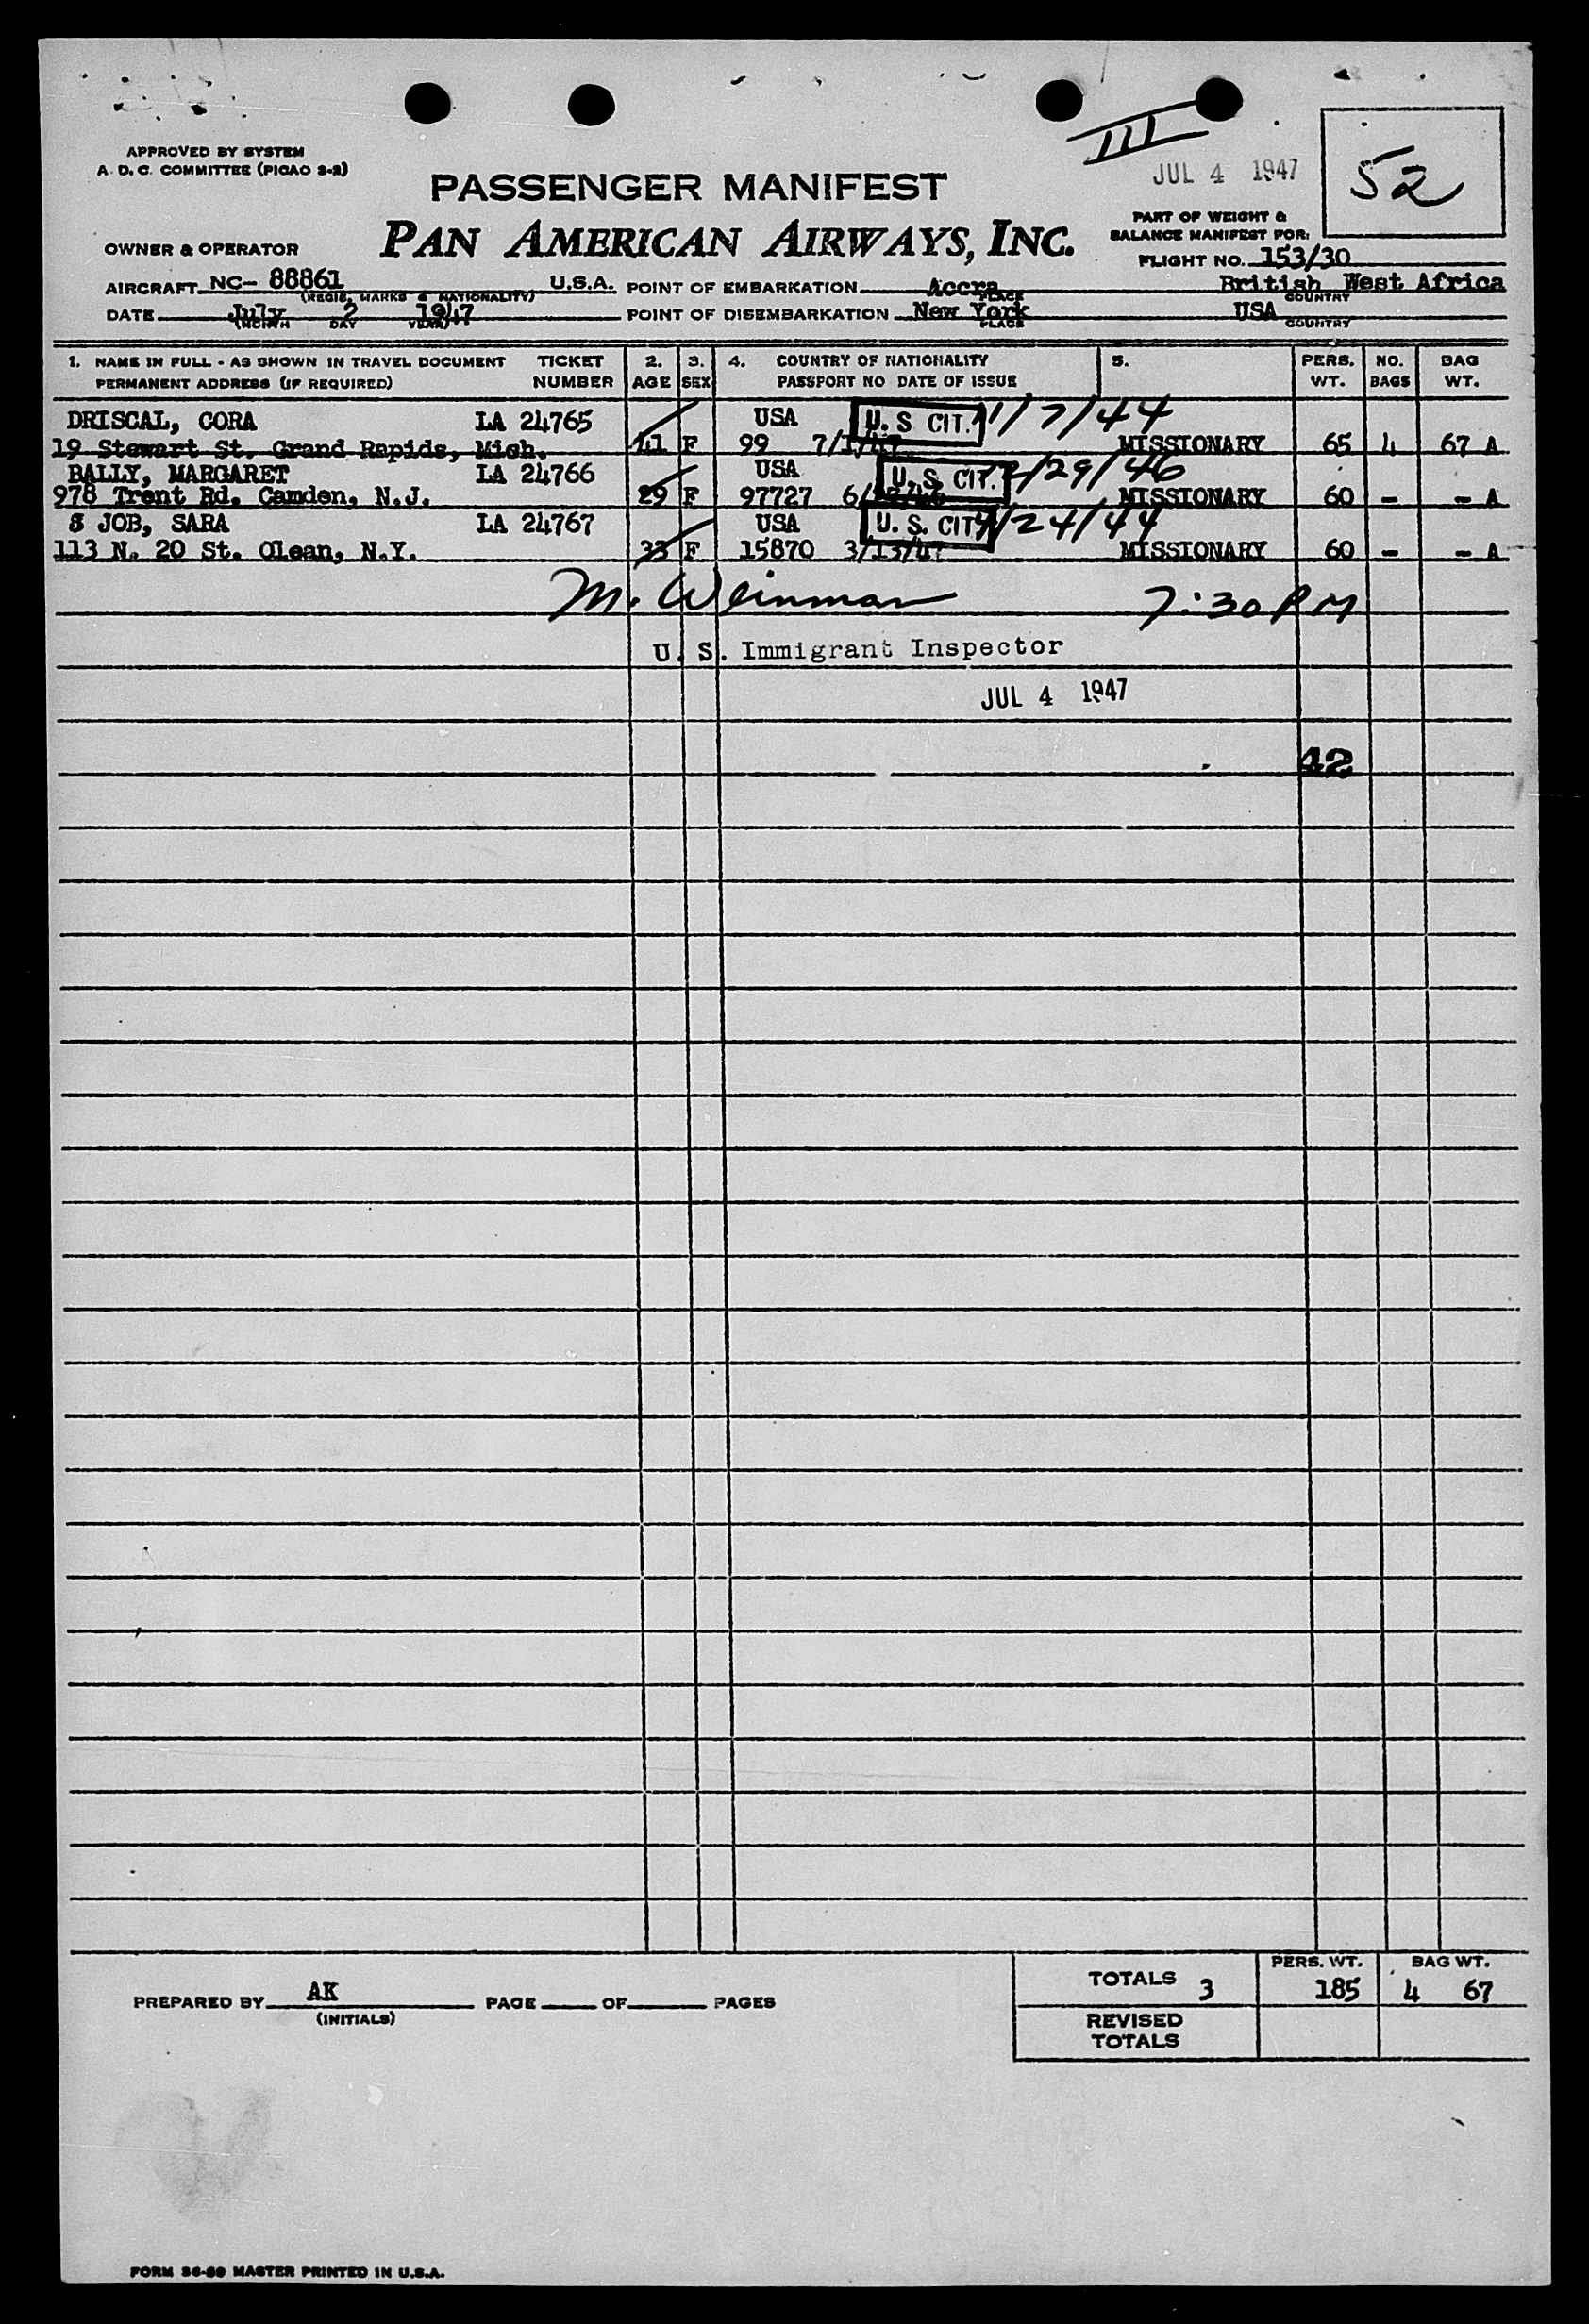 III
JUL 4 1947
52
APPROVED BY SYSTEM
A. D. C. COMMITTEE (PICAO 3-2)
PASSENGER MANIFEST
PAN AMERICAN AIRWAYS, INC.
PART OF WEIGHT &
BALANCE MANIFEST FOR:
OWNER & OPERATOR
FLIGHT NO. 153/30
AIRCRAFT NC- 88861 U.S.A. POINT OF EMBARKATION Accra British West Africa
(REGIS. MARKS & NATIONALITY) PLACE COUNTRY
DATE July 2 1947 POINT OF DISEMBARKATION New York USA
(MONTH DAY YEAR) PLACE COUNTRY
1. NAME IN FULL - AS SHOWN IN TRAVEL DOCUMENT TICKET 2. 3. 4. COUNTRY OF NATIONALITY 5. PERS. NO. BAG
PERMANENT ADDRESS (IF REQUIRED) NUMBER AGE SEX PASSPORT NO DATE OF ISSUE WT. BAGS WT.
DRISCAL, CORA LA 24765 USA U. S CIT. 11/7/44
19 Stewart St. Grand Rapids, Mich. 41 F 99 MISSIONARY 65 4 67 A
BALLY, MARGARET LA 24766 USA U. S. CIT. /29/46
978 Trent Rd. Camden, N.J. 29 F 97727 MISSIONARY 60 - - A
JOB, SARA LA 24767 USA U. S. CIT /24/44
113 N. 20 St. OLean, N.Y. 33 F 15870 3/13/47 MISSIONARY 60 - - A
M. Weinman 7:30 PM
U. S. Immigrant Inspector
JUL 4 1947
42
TOTALS 3 PERS. WT. 185 BAG WT. 4 67
PREPARED BY AK PAGE OF PAGES
(INITIALS)
REVISED
TOTALS
FORM MASTER PRINTED IN U.S.A.